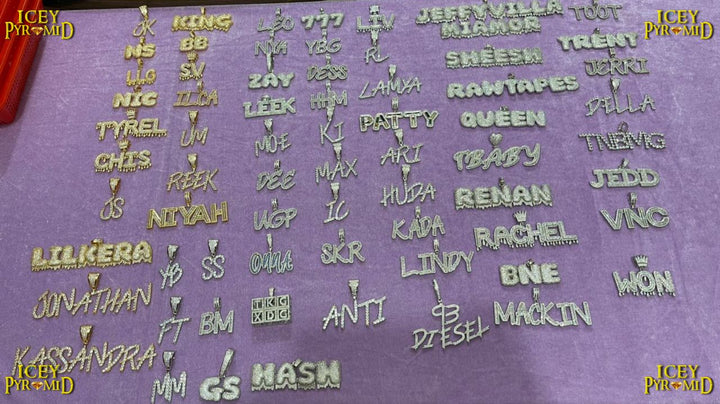 ICEY
PYRAMID
ICEY
PYRAMID
JK
KING
LEO
777
LIV
JEFFVILLA
MIAMOR
TOOT
NS
BB
NYA
YBG
RL
SHEESH
TRENT
LLG
SV
ZAY
DESS
LAMYA
RAWTAPES
JERRI
NIC
LEEK
HHM
PATTY
QUEEN
DELLA
TYREL
LM
MOE
KI
ARI
TBABY
TNBMG
CHIS
REEK
DEE
MAX
HUDA
RENAN
JEDD
JS
NIYAH
UGP
IC
KADA
RACHEL
VNC
LILKERA
YB
SS
SKR
LINDY
BNE
WON
JONATHAN
FT
BM
TKG
XDG
ANTI
DIESEL
MACKIN
KASSANDRA
MM
GS
NASH
ICEY
PYRAMID
ICEY
PYRAMID